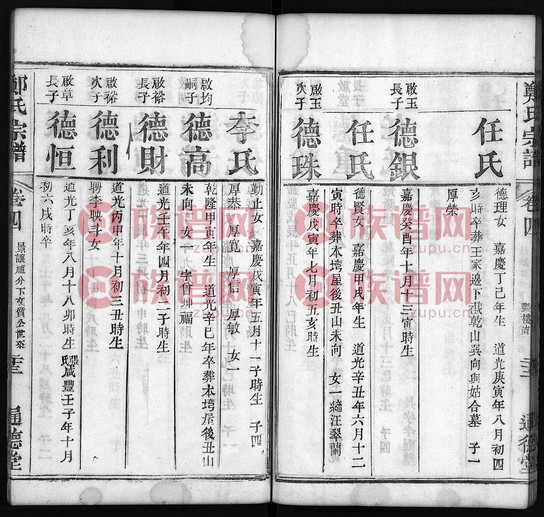 鄭氏宗譜
卷四
通德堂
任氏
德理女 嘉慶丁巳年生 道光庚寅年八月初四
亥時卒葬王家邊下張乾山巽向與姑合墓 子一
厚榮
啟玉
長子
德銀
嘉慶癸酉年十月十三寅時生
任氏
德賢女 嘉慶甲戌年生 道光辛丑年六月十二
寅時卒葬本垮屋後丑山未向 女一適汪翠蘭
啟玉
次子
德珠
嘉慶戊寅年七月初五亥時生
李氏
勤止女 嘉慶戊寅年五月十一子時生 子四
厚恭 厚寬 厚信 厚敏 女一
啟均
嗣子
德高
乾隆甲寅年生 道光辛巳年卒葬本垮居後丑山
未向 女一
啟裕
長子
德財
道光壬午年四月初二子時生
啟裕
次子
德利
道光丙申年十月初三丑時生
聘李映斗女
啟草
長子
德恒
道光丁亥年八月十八卯時生 張氏咸豐壬子年十月
初六戌時卒
鄭氏宗譜
卷四
通德堂
族谱网
zupu.cn
族谱网
zupu.cn